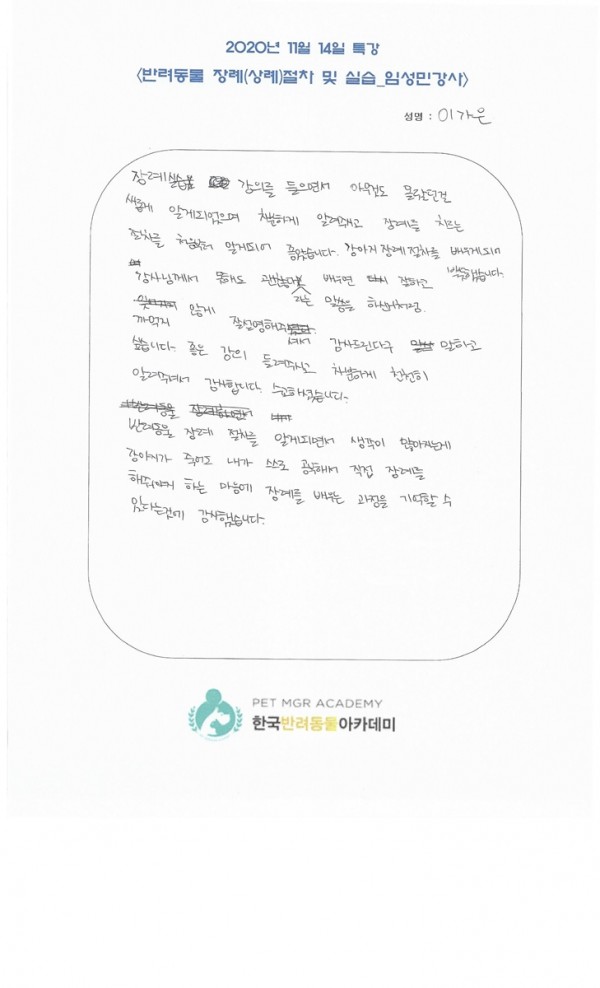 2020년 11월 14일 특강
<반려동물 장례(상례)절차 및 실습_임성민강사>
성명 : 이가은
장례 강의를 들으면서 아무것도 몰랐던걸
새롭게 알게되었으며 차분하게 알려주시고 장례를 치르는
절차를 처음부터 알게되어 좋았습니다. 강아지 장례 절차를 배우게되어
뿌듯했습니다.
강사님께서 못해도 괜찮다 배우면 잘하고
라는 말씀을 하셔서
까먹지 않게 잘설명해주
셔서 감사드린다구 말하고
싶습니다. 좋은 강의 들려주시고 차분하게 천천히
알려주셔서 감사합니다. 수고하셨습니다.
반려동물 장례 절차를 알게되면서 생각이 많아지는게
강아지가 죽어도 내가 스스로 공부해서 직접 장례를
해줘야지 하는 마음에 장례를 배우는 과정을 기억할 수
있다는것에 감사했습니다.
PET MGR ACADEMY
한국반려동물아카데미